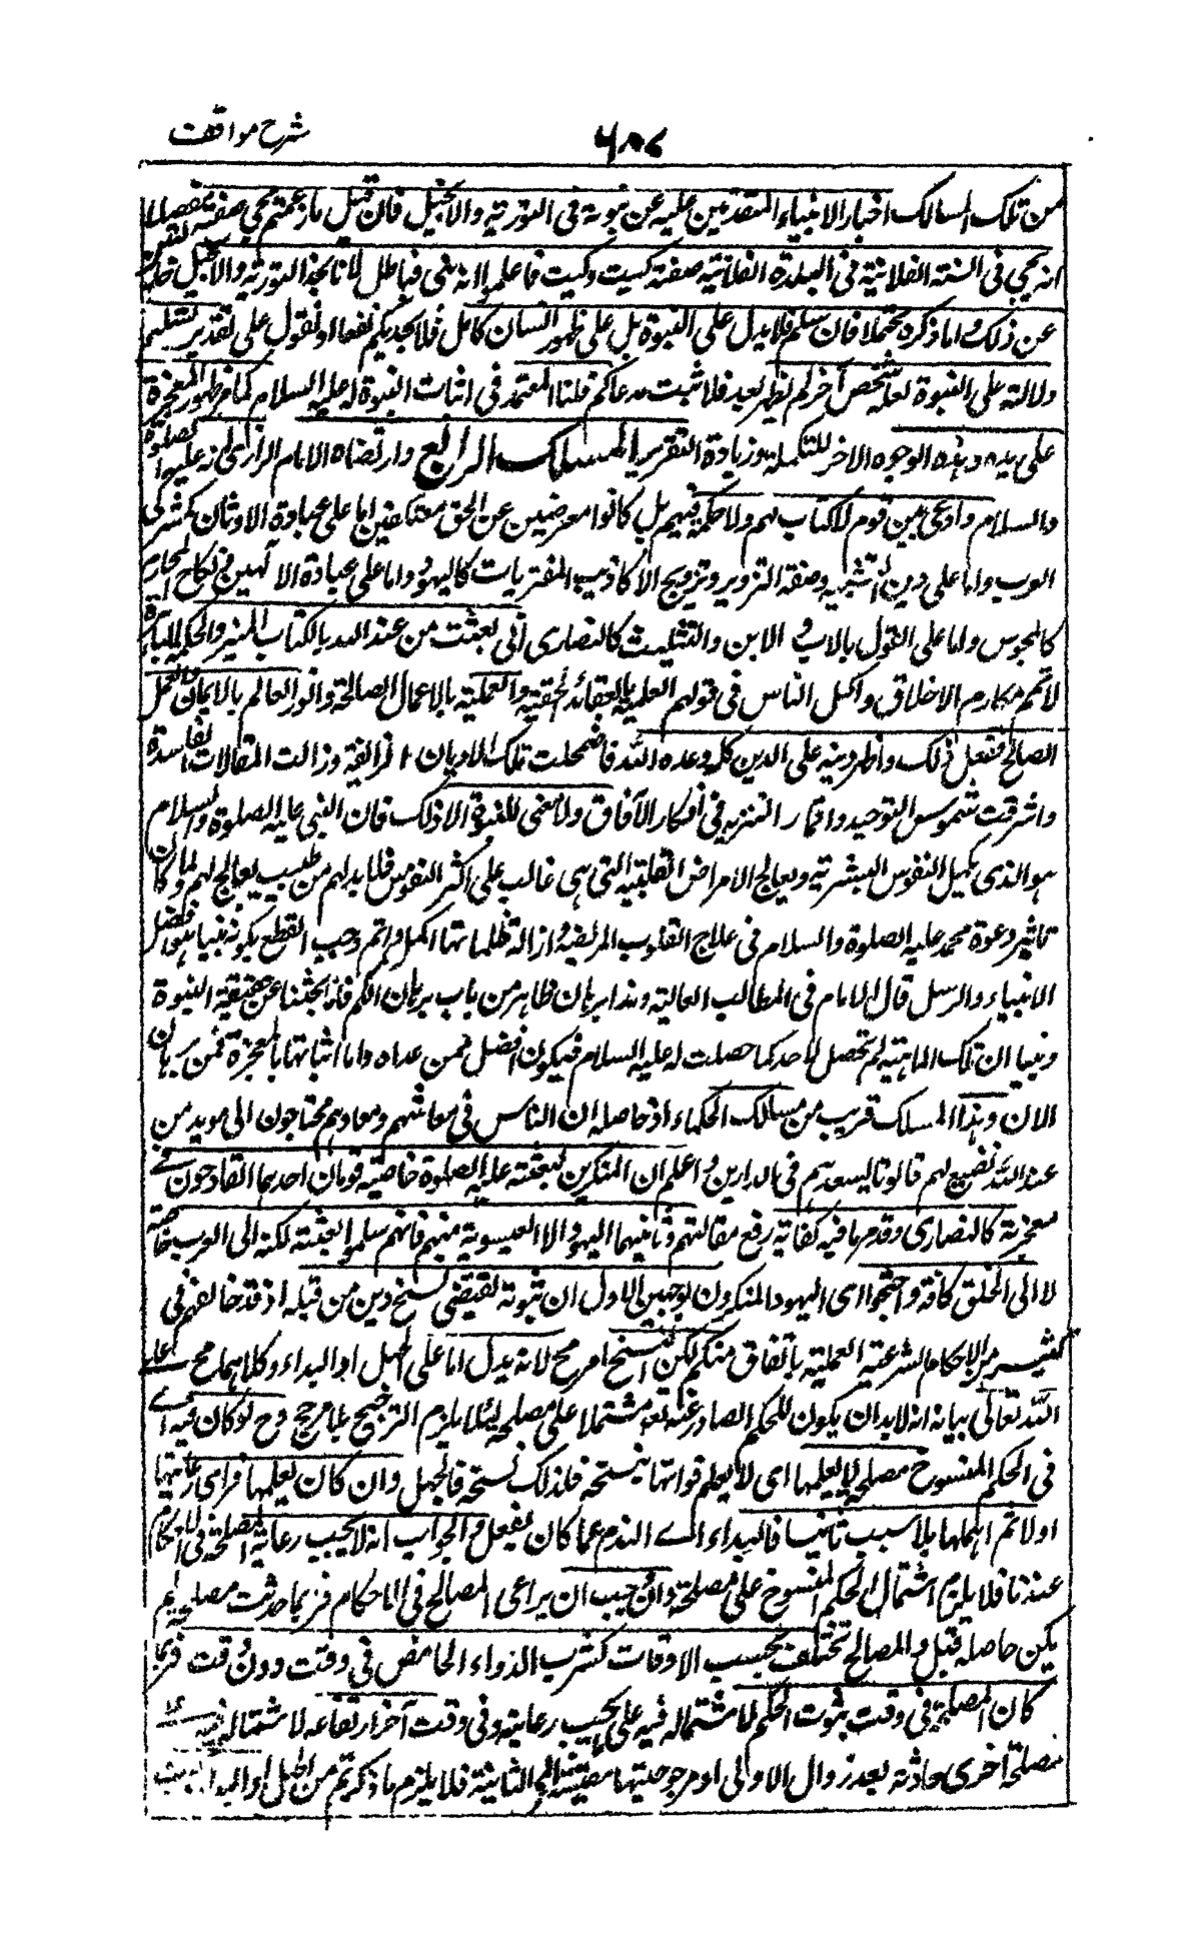 شرح مواقف
۶۸۷
من تلك المسالك اخبار الانبياء المتقدمين عليه عن نبوته فى التورية والانجيل فان قيل ما زعمتم مجئ صفته مفصلا
انه يجئ فى السنة الفلانية فى البلدة الفلانية صفته كيت وكيت فاعلموا انه نبى فباطل لانا نجد التورية والانجيل خاليين
عن ذلك واما ذكره مجملا فان سلم فلا يدل على النبوة بل على ظهور انسان كامل فلا يجديكم نفعا او نقول على تقدير تسليم
دلالته على النبوة لعله شخص آخر لم يظهر بعد فلا يثبت مدعاكم قلنا المعتمد فى اثبات النبوة له عليه السلام كما مر ظهور المعجزة
على يده وهذه الوجوه الاخر للتكملة وزيادة التقرير المسلك الرابع وارتضاه الامام الرازى انه عليه الصلوة
والسلام وادعى بين قوم لا كتاب لهم ولا حكمة فيهم بل كانوا معرضين عن الحق معتكفين اما على عبادة الاوثان كمشركى
العرب واما على دين التشبيه وصنعة التزوير وترويج الاكاذيب المفتريات كاليهود واما على عبادة الالهين ونكاح المحارم
كالمجوس واما على القول بالاب والابن والتثليث كالنصارى انى بعثت من عند الله بالكتاب المنير والحكمة الباهرة
لاتمم مكارم الاخلاق واكمل الناس فى قوتهم العلمية بالعقائد الحقية والعملية بالاعمال الصالحة وانور العالم بالايمان والعمل
الصالح ففعل ذلك واظهر دينه على الدين كله وعده الله فاضمحلت تلك الاديان الزائفة وزالت المقالات الفاسدة
واشرقت شموس التوحيد واقمار التنزيه فى اقطار الآفاق ولا معنى للنبوة الا ذلك فان النبى عليه الصلوة والسلام
هو الذى يكمل النفوس البشرية ويعالج الامراض القلبية التى هى غالب على اكثر النفوس فلا بد لهم من طبيب يعالجهم ولما كان
تاثير دعوة محمد عليه الصلوة والسلام فى علاج القلوب المريضة وازالة ظلماتها اكمل واتم وجب القطع بكونه نبيا هو افضل
الانبياء والرسل قال الامام فى المطالب العالية وهذا برهان ظاهر من باب برهان اللم فانا بحثنا عن حقيقة النبوة
وبينا ان تلك الماهية لم تحصل لاحد كما حصلت له عليه السلام فيكون افضل ممن عداه واما اثباتها بالمعجزة فمن برهان
الان وهذا المسلك قريب من مسالك الحكماء اذ حاصله ان الناس فى معاشهم ومعادهم محتاجون الى مويد من
عند الله يضع لهم قانونا يسعدهم فى الدارين واعلم ان المنكرين لبعثته عليه الصلوة خاصة قومان احدهما القادحون فى
معجزته كالنصارى وقد مر ما فيه كفاية رفع مقالتهم وثانيهما اليهود الا العيسوية منهم فانهم سلموا بعثته لكنه الى العرب خاصة
لا الى الخلق كافة واحتجوا اى اليهود المنكرون لوجهين الاول ان نبوته تقتضى نسخ دين من قبله اذ قد خالفهم فى
كثير من الاحكام الشرعية العملية باتفاق منكم لكن النسخ امر مح لانه يدل اما على الجهل او البداء وكلاهما مح على
الله تعالى بيانه انه لا بد ان يكون للحكم الصادر عنه تع مشتملا على مصلحة لئلا يلزم الترجيح بلا مرجح وح لو كان فيه اى
فى الحكم المنسوخ مصلحة لا يعلمها اى لا يعلم فواتها بنسخه فلذلك نسخه فالجهل وان كان يعلمها فراى رعايتها
اولا ثم اهملها بلا سبب ثانيا فالبداء اى الندم عما كان يفعل والجواب انه لا يجب رعاية المصلحة فى الاحكام
عندنا فلا يلزم اشتمال الحكم المنسوخ على مصلحة وان وجب ان يراعى المصالح فى الاحكام فربما حدثت مصلحة لم
يكن حاصلة قبل والمصالح تختلف بحسب الاوقات كشرب الدواء الحامض فى وقت دون وقت فربما
كان المصلحة فى وقت ثبوت الحكم لاشتماله فيه على ما يجب رعايته وفى وقت آخر ارتفاعه لاشتماله فيه على
مصلحة اخرى حادثة بعد زوال الاولى او مرجوحيتها مقيسة الى الثانية فلا يلزم ما ذكرتم من الجهل او البداء